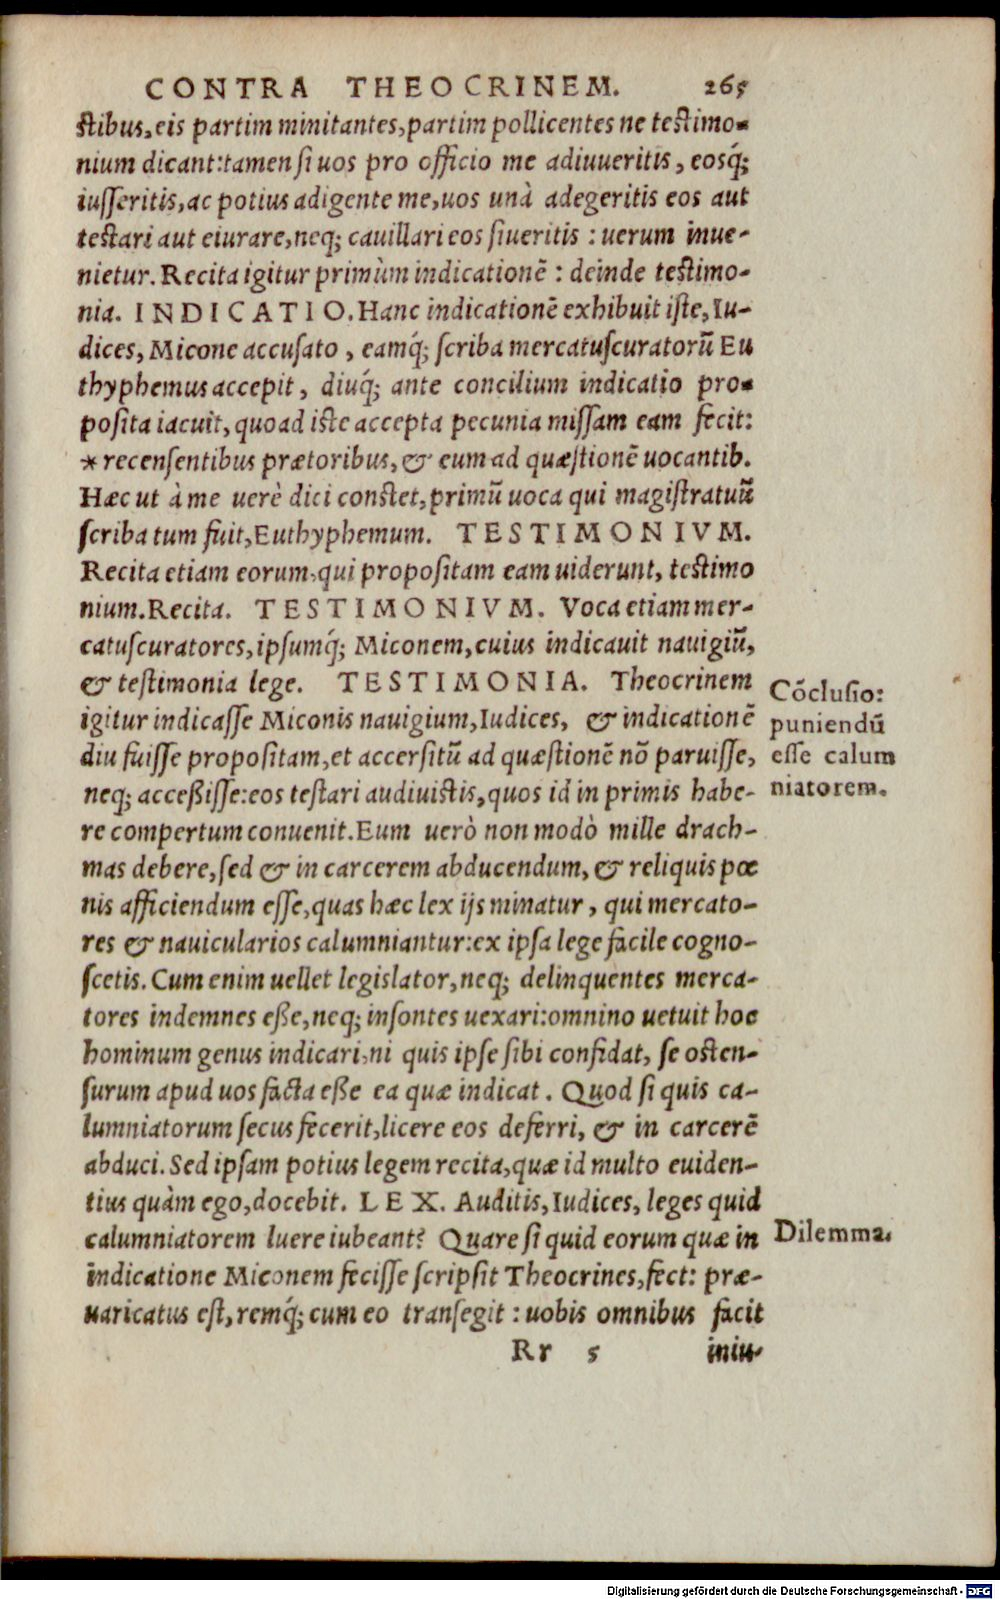 CONTRA THEOCRINEM. 265
stibus, eis partim minitantes, partim pollicentes ne testimo-
nium dicant: tamen si uos pro officio me adiuueritis, eosq́;
iusseritis, ac potius adigente me, uos unà adegeritis eos aut
testari aut eiurare, neq; cauillari eos siueritis : uerum inue-
nietur. Recita igitur primùm indicationē : deinde testimo-
nia. INDICATIO. Hanc indicationē exhibuit iste, Iu-
dices, Micone accusato , eamq́; scriba mercatuscuratorū Eu
thyphemus accepit, diuq́; ante concilium indicatio pro-
posita iacuit, quoad iste accepta pecunia missam eam fecit:
* recensentibus prætoribus, & eum ad quæstionē uocantib.
Hæc ut à me uerè dici constet, primū uoca qui magistratuū
scriba tum fuit, Euthyphemum. TESTIMONIVM.
Recita etiam eorum, qui propositam eam uiderunt, testimo
nium. Recita. TESTIMONIVM. Voca etiam mer-
catuscuratores, ipsumq́; Miconem, cuius indicauit nauigiū,
& testimonia lege. TESTIMONIA. Theocrinem
igitur indicasse Miconis nauigium, Iudices, & indicationē
diu fuisse propositam, et accersitū ad quæstionē nō paruisse,
neq; acceßisse: eos testari audiuistis, quos id in primis habe-
re compertum conuenit. Eum uerò non modò mille drach-
mas debere, sed & in carcerem abducendum, & reliquis pœ
nis afficiendum esse, quas hæc lex ijs minatur , qui mercato-
res & nauicularios calumniantur: ex ipsa lege facile cogno-
scetis. Cum enim uellet legislator, neq; delinquentes merca-
tores indemnes eße, neq; insontes uexari: omnino uetuit hoc
hominum genus indicari, ni quis ipse sibi confidat, se osten-
surum apud uos facta eße ea quæ indicat. Quod si quis ca-
lumniatorum secus fecerit, licere eos deferri, & in carcerē
abduci. Sed ipsam potius legem recita, quæ id multo euiden-
tius quàm ego, docebit. LEX. Auditis, Iudices, leges quid
calumniatorem luere iubeant? Quare si quid eorum quæ in
indicatione Miconem fecisse scripsit Theocrines, fect: præ-
uaricatus est, remq́; cum eo transegit : uobis omnibus facit
Rr 5 iniu-
Cōclusio:
puniendū
esse calum
niatorem.
Dilemma.
Digitalisierung gefördert durch die Deutsche Forschungsgemeinschaft - DFG